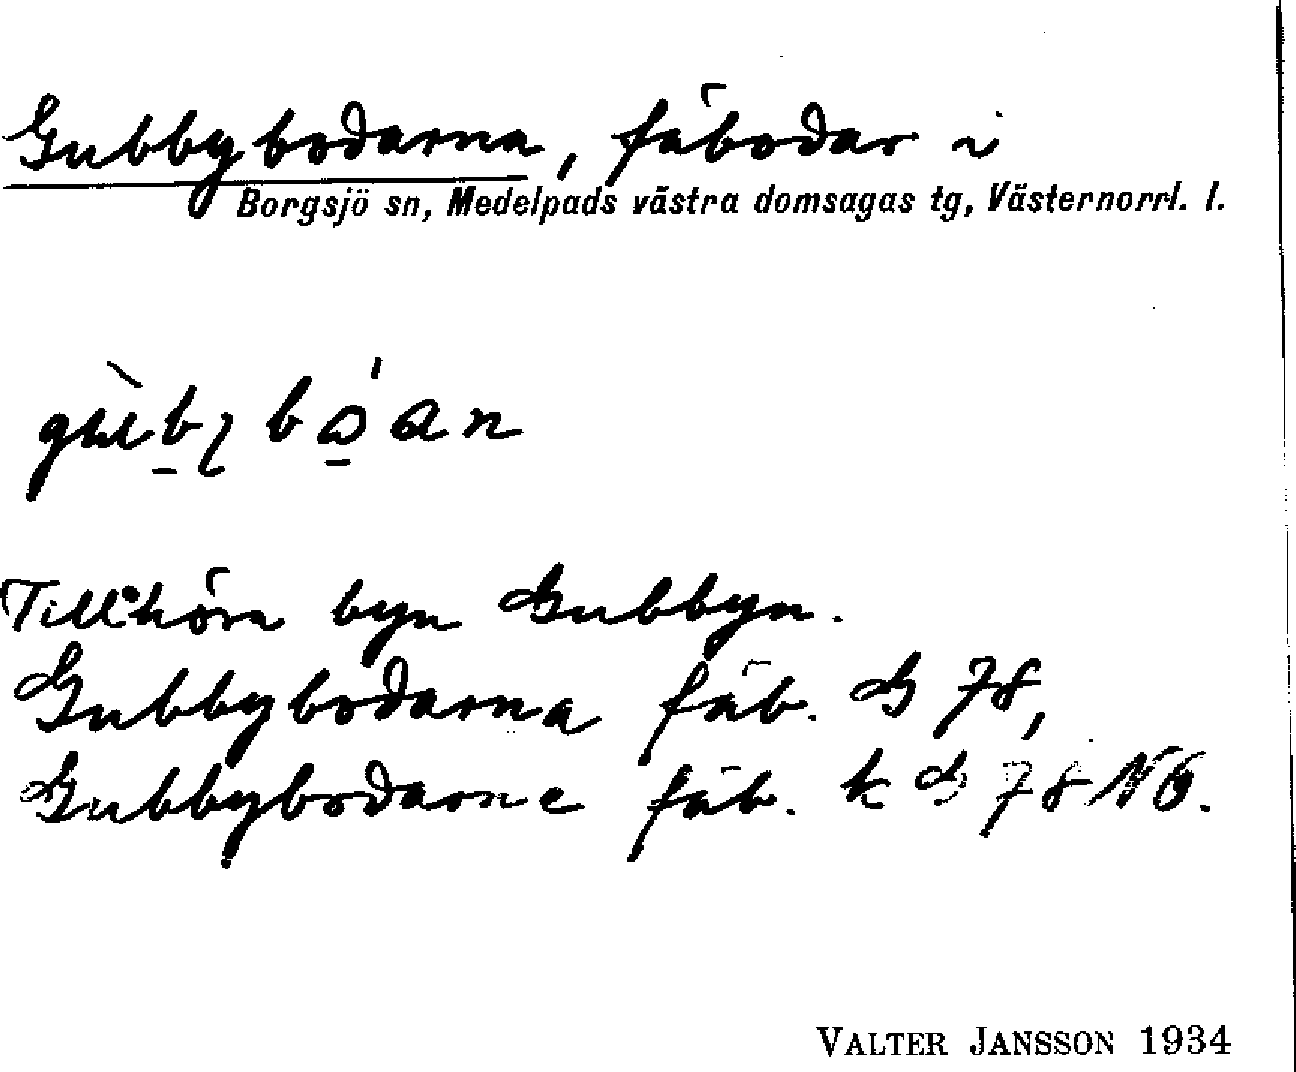 Gubbybodarna, fäbodar i
Borgsjö sn, Medelpads västra domsagas tg, Västernorrl. l.
Tillhöra byn Gubbyn.
Gubbybodarna fäb. G 78,
Gubbybodarne fäb. k G 78 NO.
VALTER JANSSON 1934